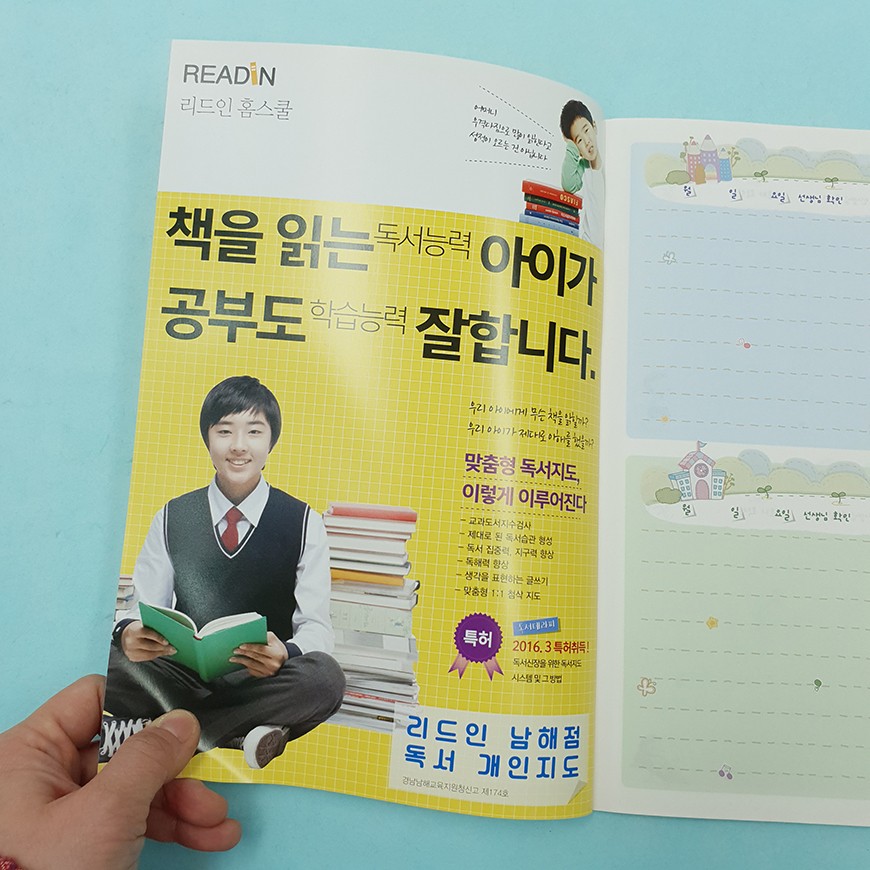 READIN
리드인 홈스쿨
어머니
우격다짐으로 많이 읽힌다고
성적이 오르는 건 아닙니다
FIASCO
책을 읽는 독서능력 아이가
공부도 학습능력 잘합니다.
우리 아이에게 무슨 책을 읽힐까?
우리 아이가 제대로 이해를 했을까?
맞춤형 독서지도,
이렇게 이루어진다
- 교과도서지수검사
- 제대로 된 독서습관 형성
- 독서 집중력, 지구력 향상
- 독해력 향상
- 생각을 표현하는 글쓰기
- 맞춤형 1:1 첨삭 지도
특허
독서테라피
2016. 3 특허취득!
독서신장을 위한 독서지도
시스템 및 그 방법
리드인 남해점
독서 개인지도
경남남해교육지원청신고 제174호
월 일 요일 선생님 확인
월 일 요일 선생님 확인